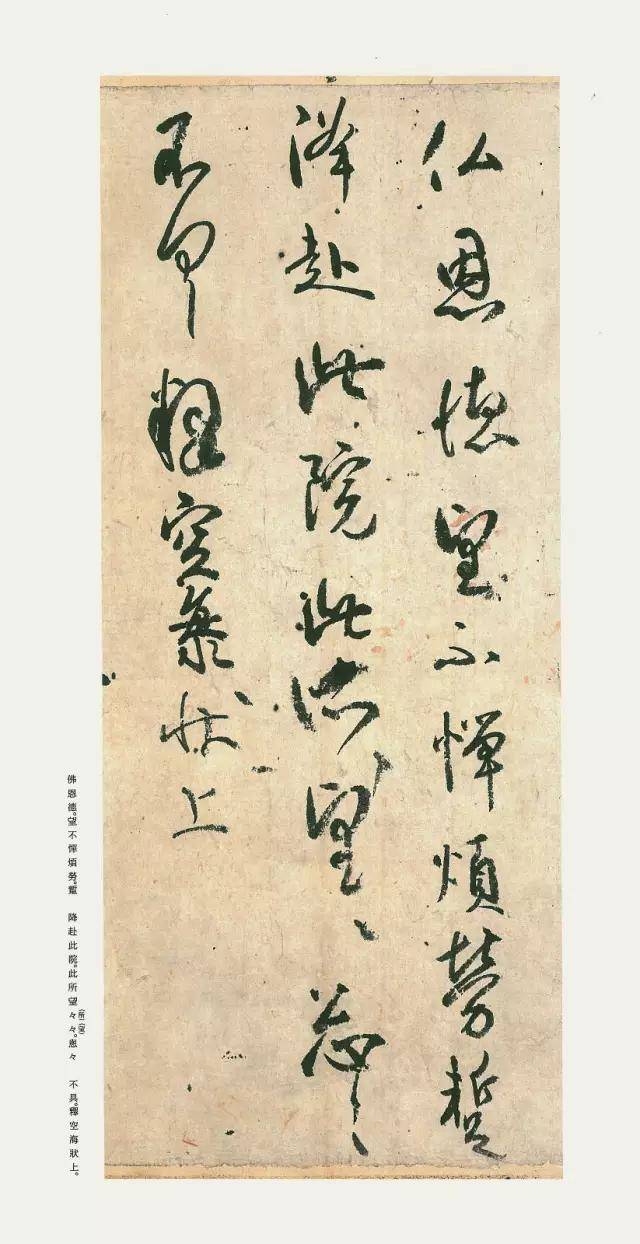 仏恩徳望不憚煩労蹔
降赴此院此所望〻忩〻
不具釋空海状上
佛恩德。望不憚煩勞。蹔 降赴此院。此所望々々。忩々 不具。釋空海狀上。
(所) (望)